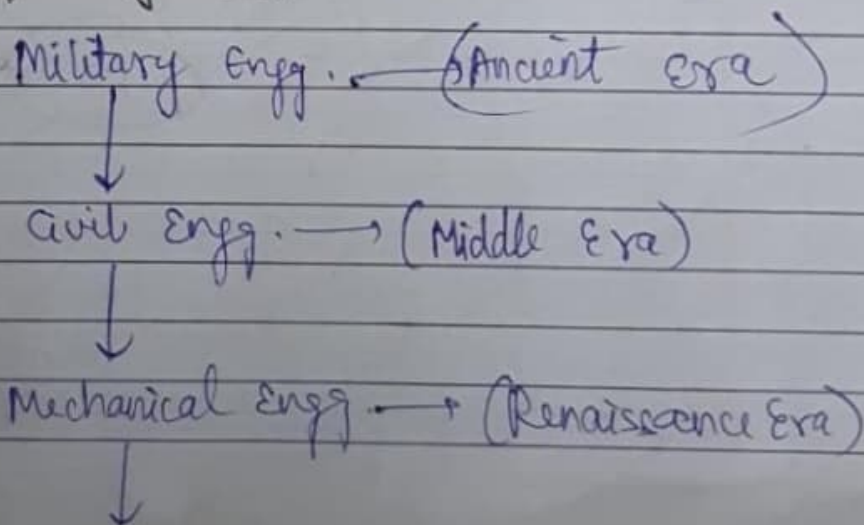 Military Engg. (Ancient Era)
Civil Engg. (Middle Era)
Mechanical Engg (Renaissance Era)